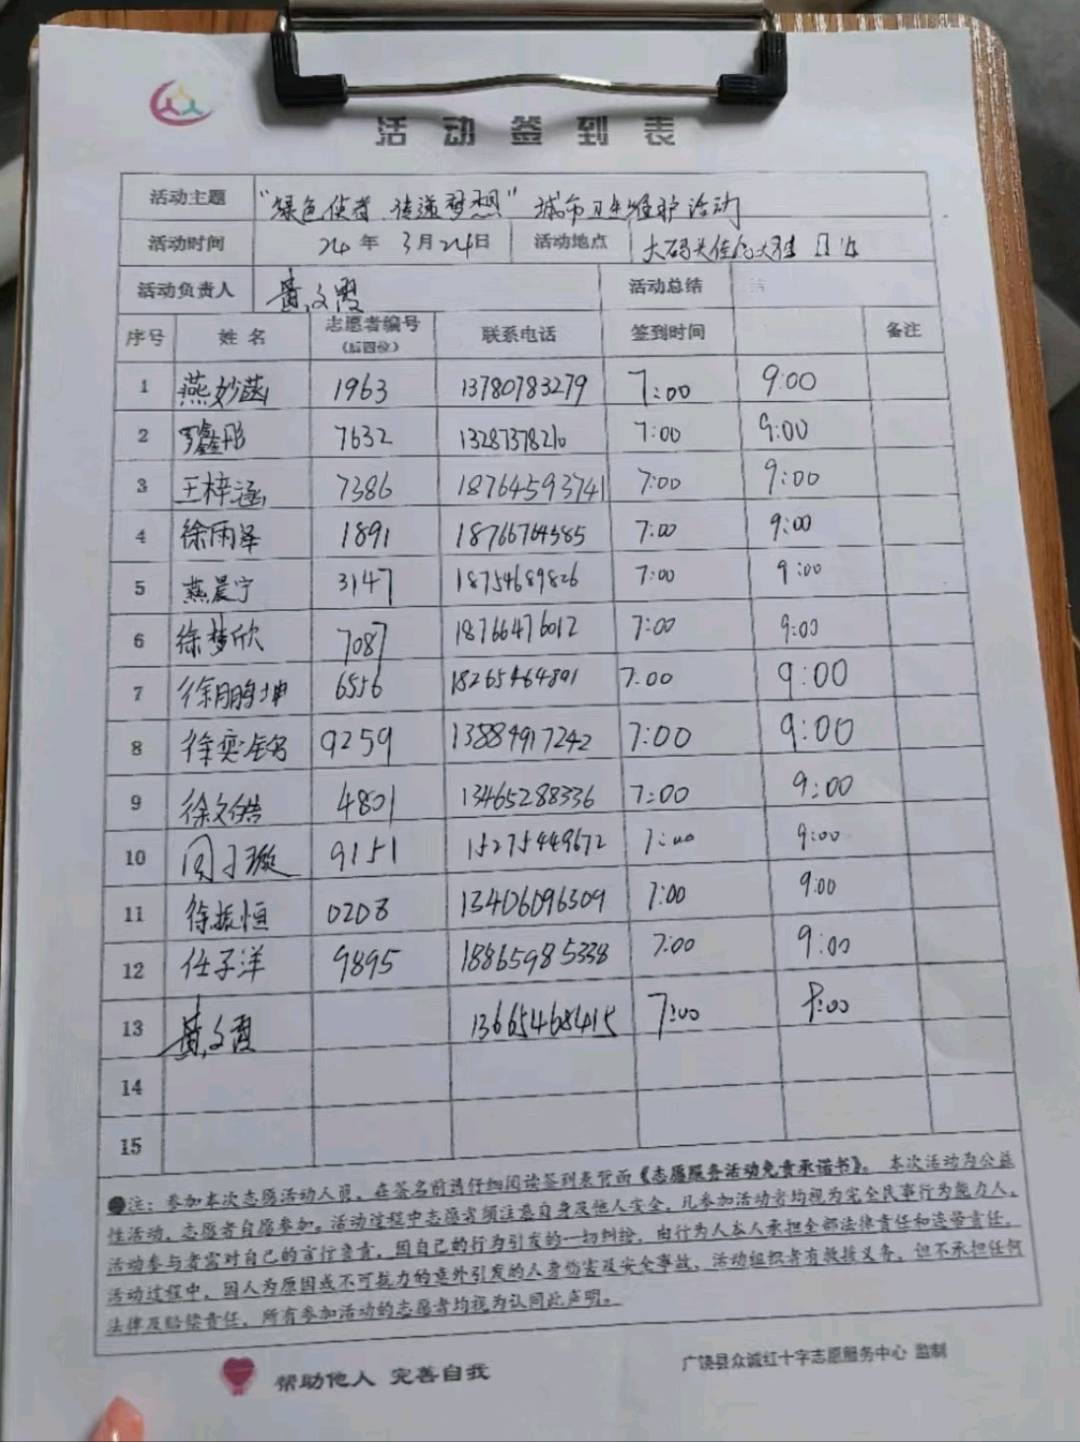 活动签到表
活动主题 "绿色使者 传递梦想" 城市卫生维护活动
活动时间 24年3月24日 活动地点 大码头
活动负责人 黄文霞 活动总结
序号 姓名 志愿者编号（后四位） 联系电话 签到时间 备注
1 燕妙菡 1963 13780783279 7:00 9:00
2 罗鑫彤 7632 13287378210 7:00 9:00
3 王梓涵 7386 18764593741 7:00 9:00
4 徐雨泽 1891 18766764385 7:00 9:00
5 燕晨宁 3147 18754689826 7:00 9:00
6 徐梦欣 7087 18766476012 7:00 9:00
7 徐鹏坤 6556 18265464891 7:00 9:00
8 徐奕铭 9259 13884917242 7:00 9:00
9 徐文皓 4801 13465288336 7:00 9:00
10 周子璇 9151 15275449672 7:00 9:00
11 徐振恒 0208 13406096309 7:00 9:00
12 任子洋 9895 18865985338 7:00 9:00
13 黄文霞 13665468415 7:00 9:00
14
15
●注：参加本次志愿活动人员，在签名前请仔细阅读签到表背面《志愿服务活动免责承诺书》。本次活动为公益
性活动，志愿者自愿参加。活动过程中志愿者须注意自身及他人安全，凡参加活动者均视为完全民事行为能力人，
活动参与者需对自己的言行负责，因自己的行为引发的一切纠纷，由行为人本人承担全部法律责任和连带责任。
活动过程中，因人为原因或不可抗力的意外引发的人身伤害及安全事故，活动组织者有救援义务，但不承担任何
法律及赔偿责任，所有参加活动的志愿者均视为认同此声明。
帮助他人 完善自我 广饶县众诚红十字志愿服务中心 监制